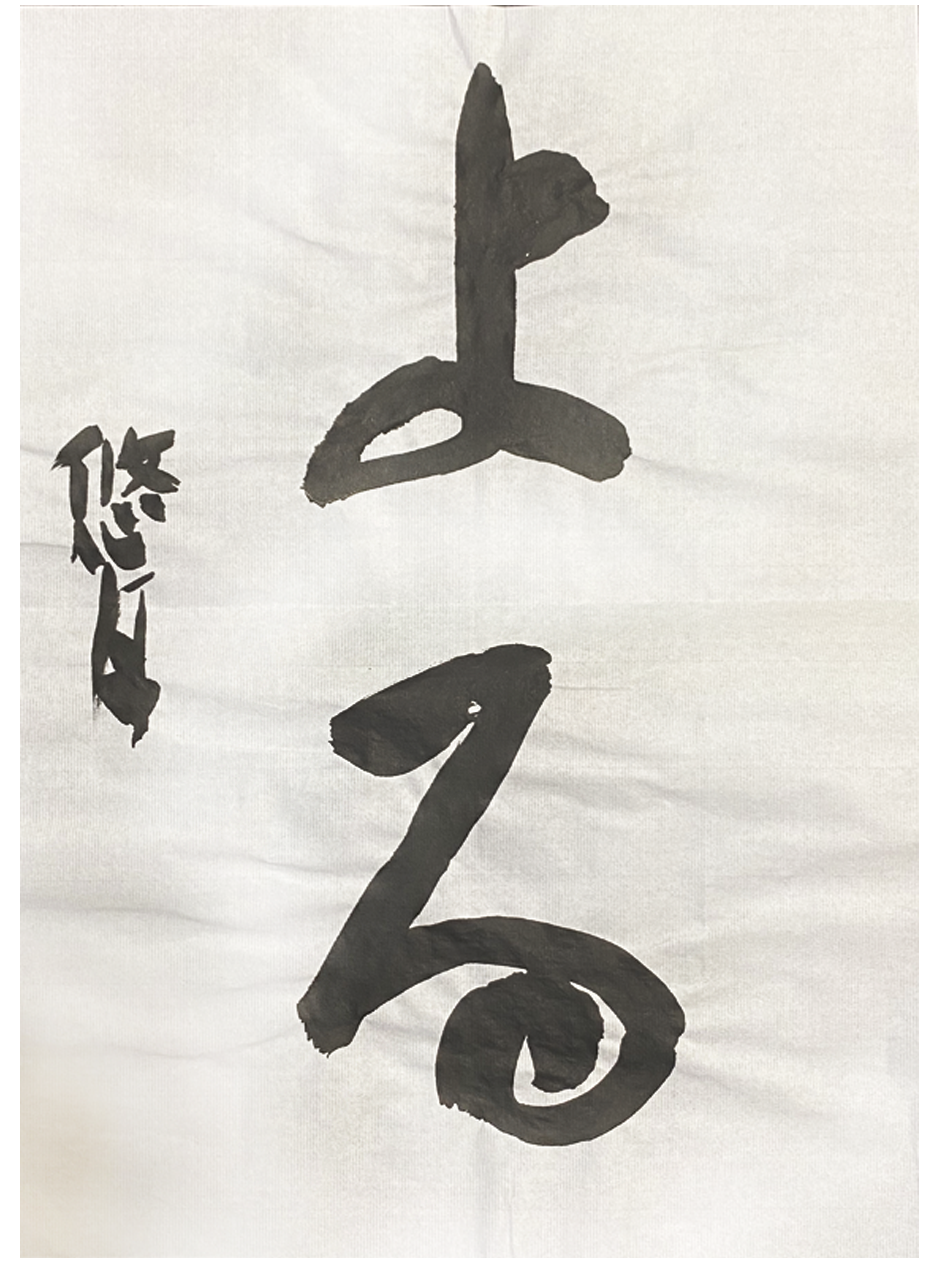 よる
悠月